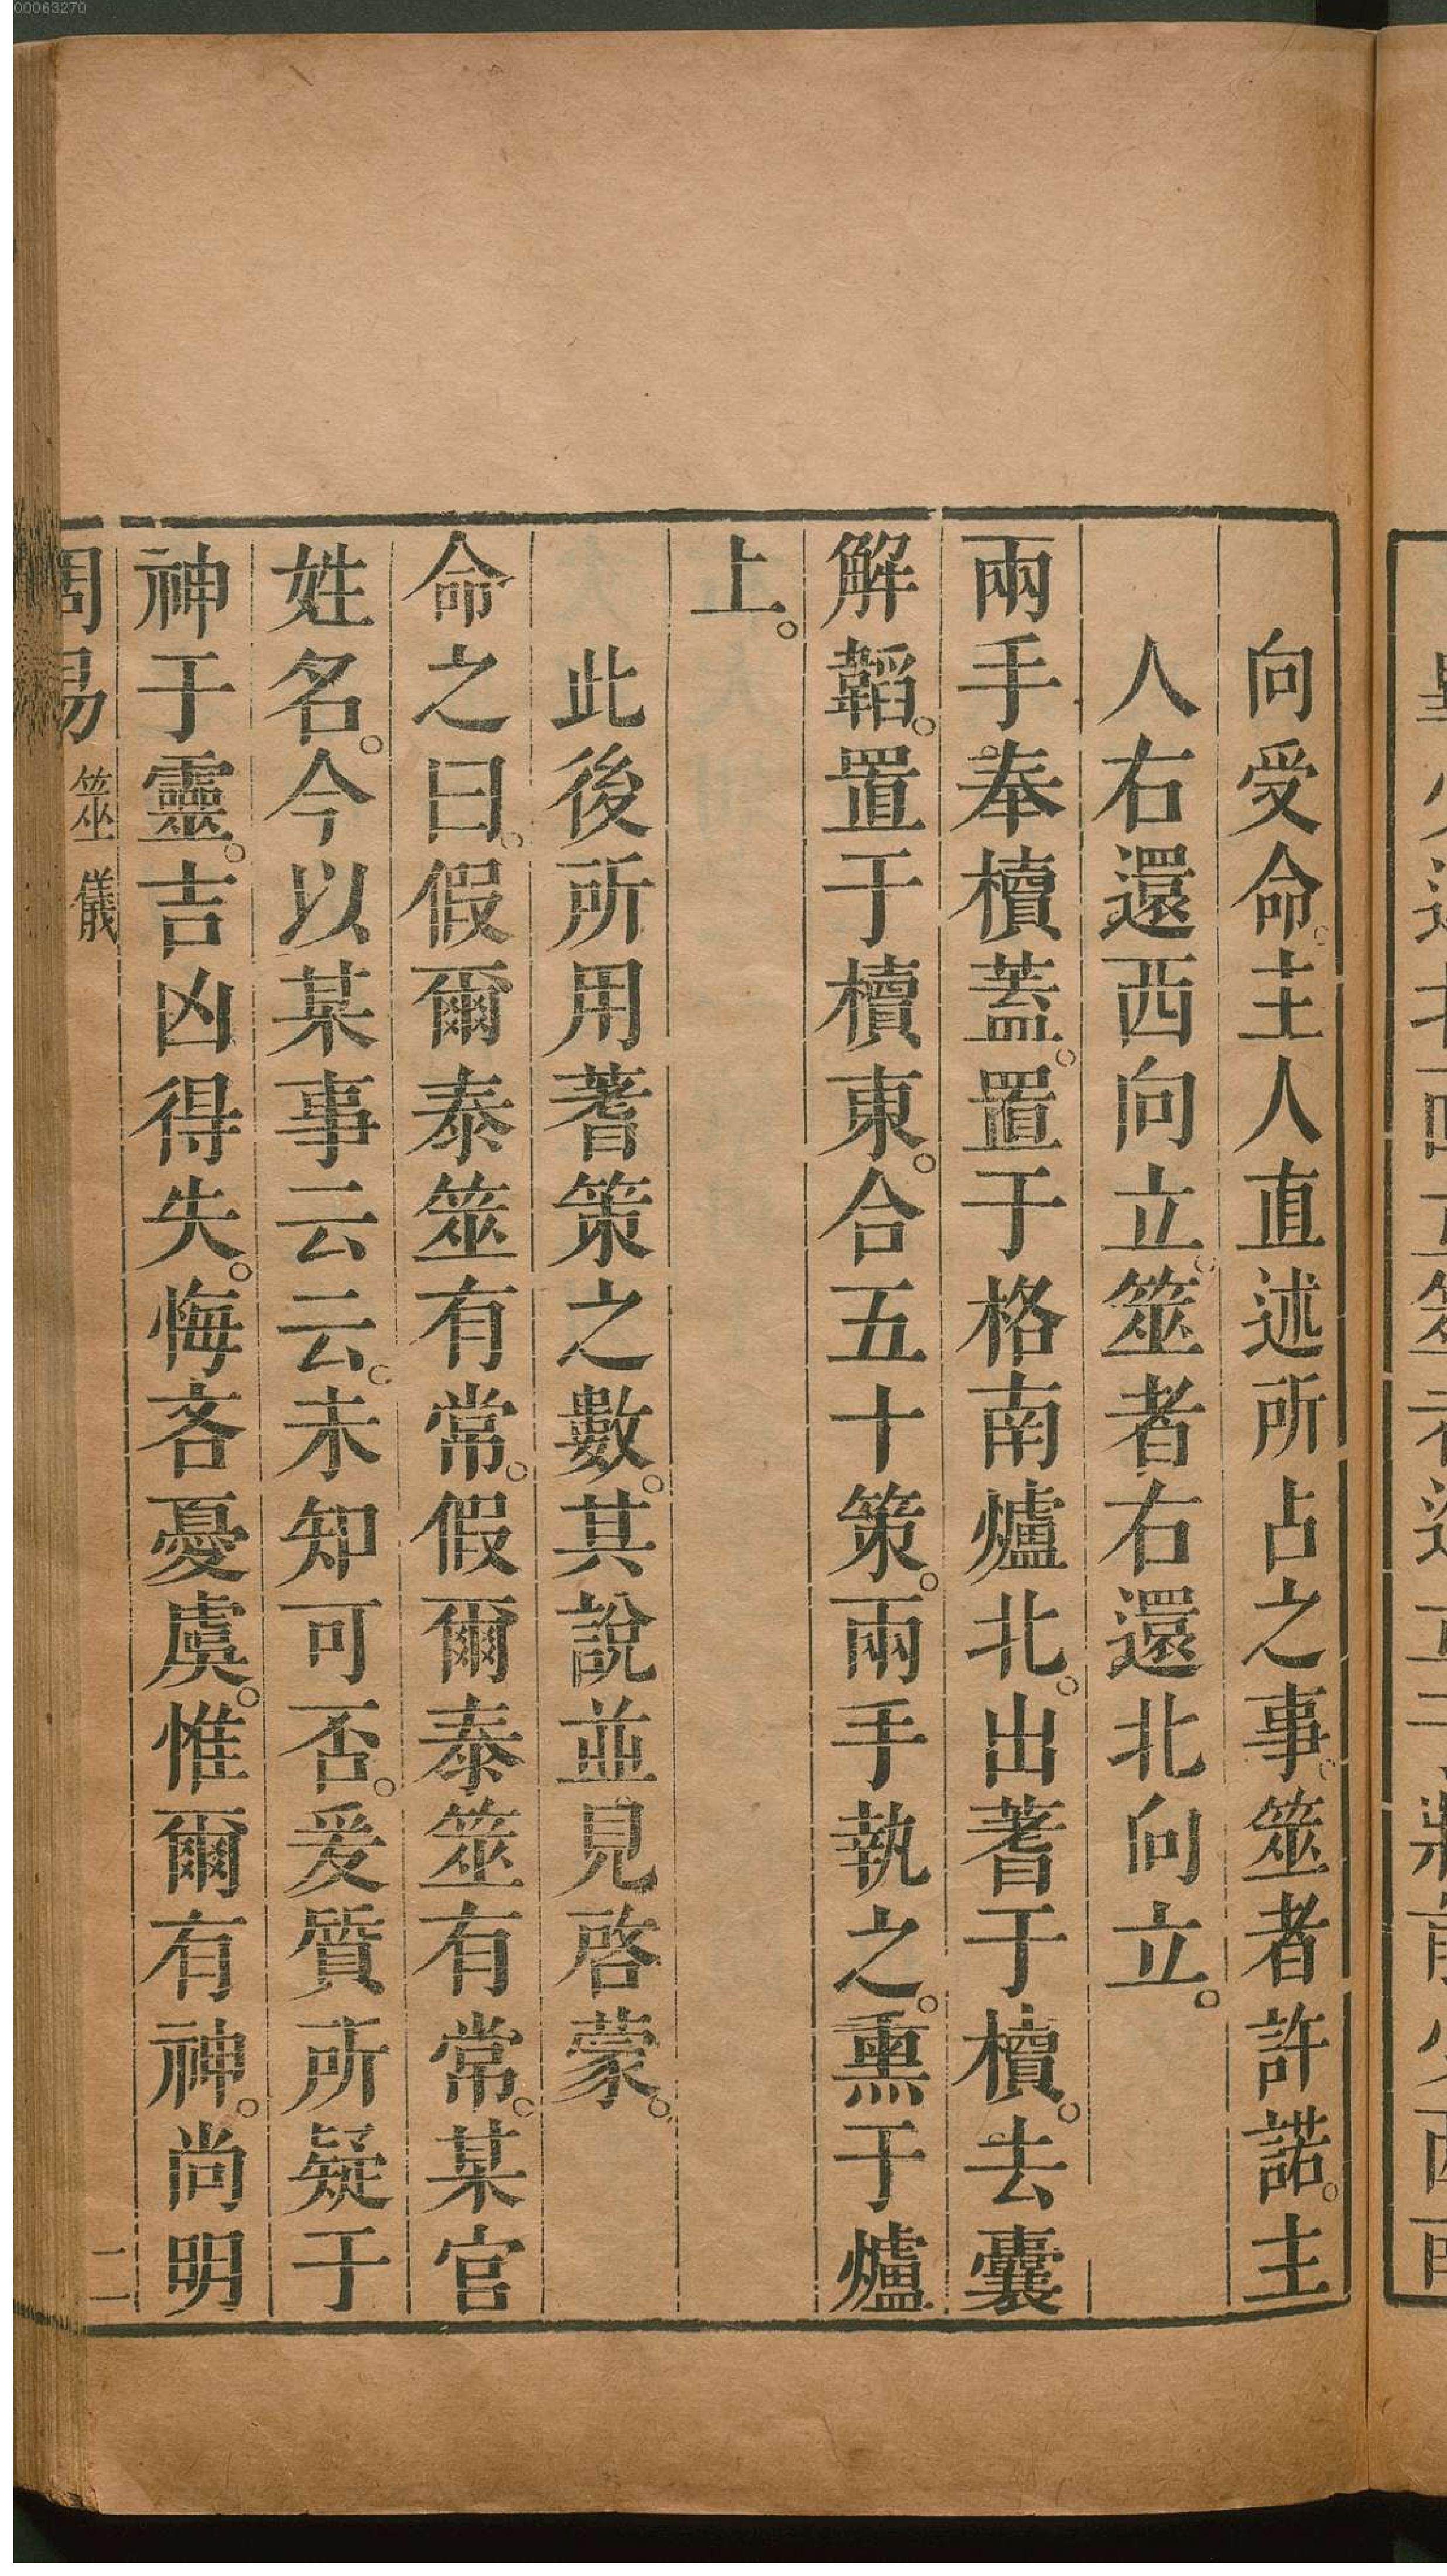 向受命。主人直述所占之事。筮者許諾。主
人右還西向立。筮者右還北向立。
兩手奉櫝蓋。置于格南爐北。出蓍于櫝。去囊
解韜。置于櫝東。合五十策。兩手執之。熏于爐
上。
此後所用蓍策之數。其說並見啓蒙。
命之曰。假爾泰筮有常。假爾泰筮有常。某官
姓名。今以某事云云。未知可否。爰質所疑于
神于靈。吉凶得失。悔吝憂虞。惟爾有神。尚明
周易 筮儀 二
00063270